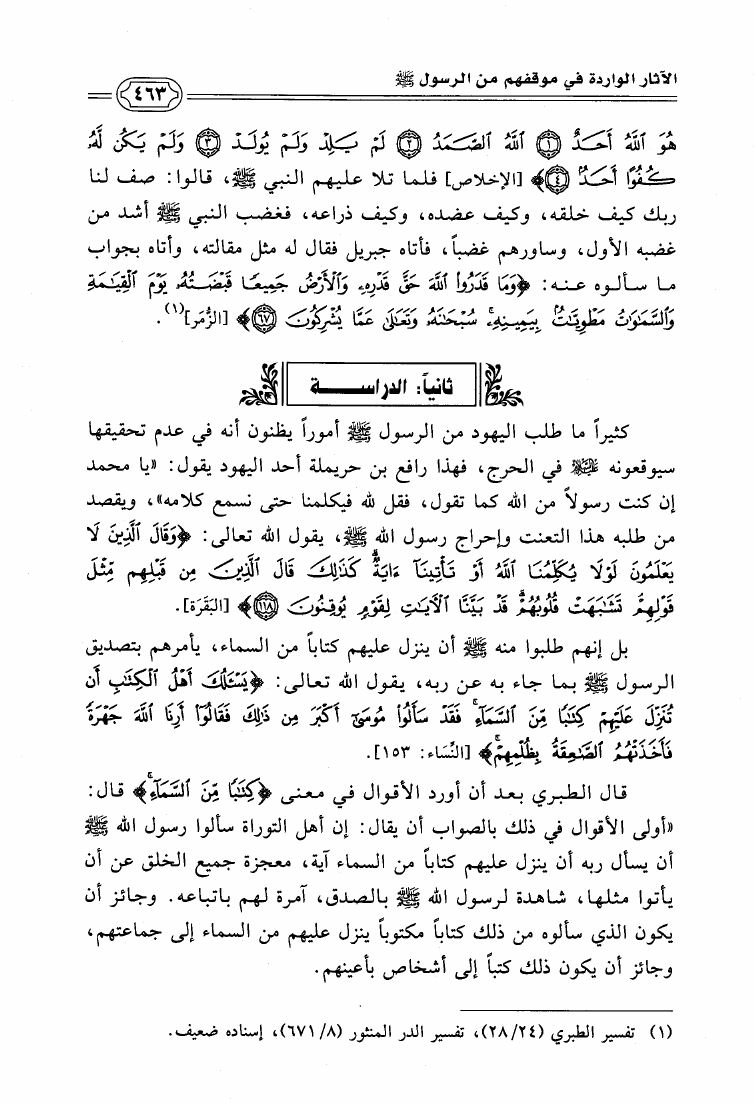 الآثار الواردة في موقفهم من الرسول ﷺ
٤٦٣
هُوَ ٱللَّهُ أَحَدٌ ﴿١﴾ ٱللَّهُ ٱلصَّمَدُ ﴿٢﴾ لَمْ يَلِدْ وَلَمْ يُولَدْ ﴿٣﴾ وَلَمْ يَكُن لَّهُۥ
كُفُوًا أَحَدٌ ﴿٤﴾﴾ [الإخلاص] فلما تلا عليهم النبي ﷺ، قالوا: صف لنا
ربك كيف خلقه، وكيف عضده، وكيف ذراعه، فغضب النبي ﷺ أشد من
غضبه الأول، وساورهم غضباً، فأتاه جبريل فقال له مثل مقالته، وأتاه بجواب
ما سألوه عنه: ﴿وَمَا قَدَرُوا۟ ٱللَّهَ حَقَّ قَدْرِهِۦ وَٱلْأَرْضُ جَمِيعًا قَبْضَتُهُۥ يَوْمَ ٱلْقِيَٰمَةِ
وَٱلسَّمَٰوَٰتُ مَطْوِيَّٰتٌۢ بِيَمِينِهِۦۚ سُبْحَٰنَهُۥ وَتَعَٰلَىٰ عَمَّا يُشْرِكُونَ ﴿٦٧﴾﴾ [الزُّمَر](١).
ثانياً: الدراســـــة
كثيراً ما طلب اليهود من الرسول ﷺ أموراً يظنون أنه في عدم تحقيقها
سيوقعونه ﷺ في الحرج، فهذا رافع بن حريملة أحد اليهود يقول: «يا محمد
إن كنت رسولاً من الله كما تقول، فقل لله فيكلمنا حتى نسمع كلامه»، ويقصد
من طلبه هذا التعنت وإحراج رسول الله ﷺ، يقول الله تعالى: ﴿وَقَالَ ٱلَّذِينَ لَا
يَعْلَمُونَ لَوْلَا يُكَلِّمُنَا ٱللَّهُ أَوْ تَأْتِينَآ ءَايَةٌۗ كَذَٰلِكَ قَالَ ٱلَّذِينَ مِن قَبْلِهِم مِّثْلَ
قَوْلِهِمْۘ تَشَٰبَهَتْ قُلُوبُهُمْۗ قَدْ بَيَّنَّا ٱلْآيَٰتِ لِقَوْمٍ يُوقِنُونَ ﴿١١٨﴾﴾ [البَقَرَة].
بل إنهم طلبوا منه ﷺ أن ينزل عليهم كتاباً من السماء، يأمرهم بتصديق
الرسول ﷺ بما جاء به عن ربه، يقول الله تعالى: ﴿يَسْـَٔلُكَ أَهْلُ ٱلْكِتَٰبِ أَن
تُنَزِّلَ عَلَيْهِمْ كِتَٰبًا مِّنَ ٱلسَّمَآءِۚ فَقَدْ سَأَلُوا۟ مُوسَىٰٓ أَكْبَرَ مِن ذَٰلِكَ فَقَالُوٓا۟ أَرِنَا ٱللَّهَ جَهْرَةً
فَأَخَذَتْهُمُ ٱلصَّٰعِقَةُ بِظُلْمِهِمْۚ﴾ [النِّسَاء: ١٥٣].
قال الطبري بعد أن أورد الأقوال في معنى ﴿كِتَٰبًا مِّنَ ٱلسَّمَآءِۚ﴾ قال:
«أولى الأقوال في ذلك بالصواب أن يقال: إن أهل التوراة سألوا رسول الله ﷺ
أن يسأل ربه أن ينزل عليهم كتاباً من السماء آية، معجزة جميع الخلق عن أن
يأتوا مثلها، شاهدة لرسول الله ﷺ بالصدق، آمرة لهم باتباعه. وجائز أن
يكون الذي سألوه من ذلك كتاباً مكتوباً ينزل عليهم من السماء إلى جماعتهم،
وجائز أن يكون ذلك كتباً إلى أشخاص بأعينهم.
(١) تفسير الطبري (٢٨/٢٤)، تفسير الدر المنثور (٦٧١/٨)، إسناده ضعيف.